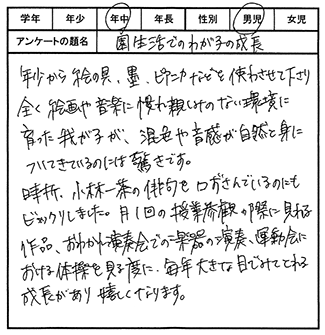 学年 年少 年中 年長 性別 男児 女児
アンケートの題名 園生活でのわが子の成長
年少から絵の具、墨、ピアニカなどを使わせて下さり
全く絵画や音楽に慣れ親しみのない環境に
育った我が子が、混色や音感が自然と身に
ついてきているのには驚きです。
時折、小林一茶の俳句を口ずさんでいるのにも
ビックリしました。月1回の授業参観の際に見れる
作品、おわかれ演奏会での楽器の演奏、運動会に
おける体操を見る度に、毎年大きな目でみてとれる
成長があり嬉しくなります。